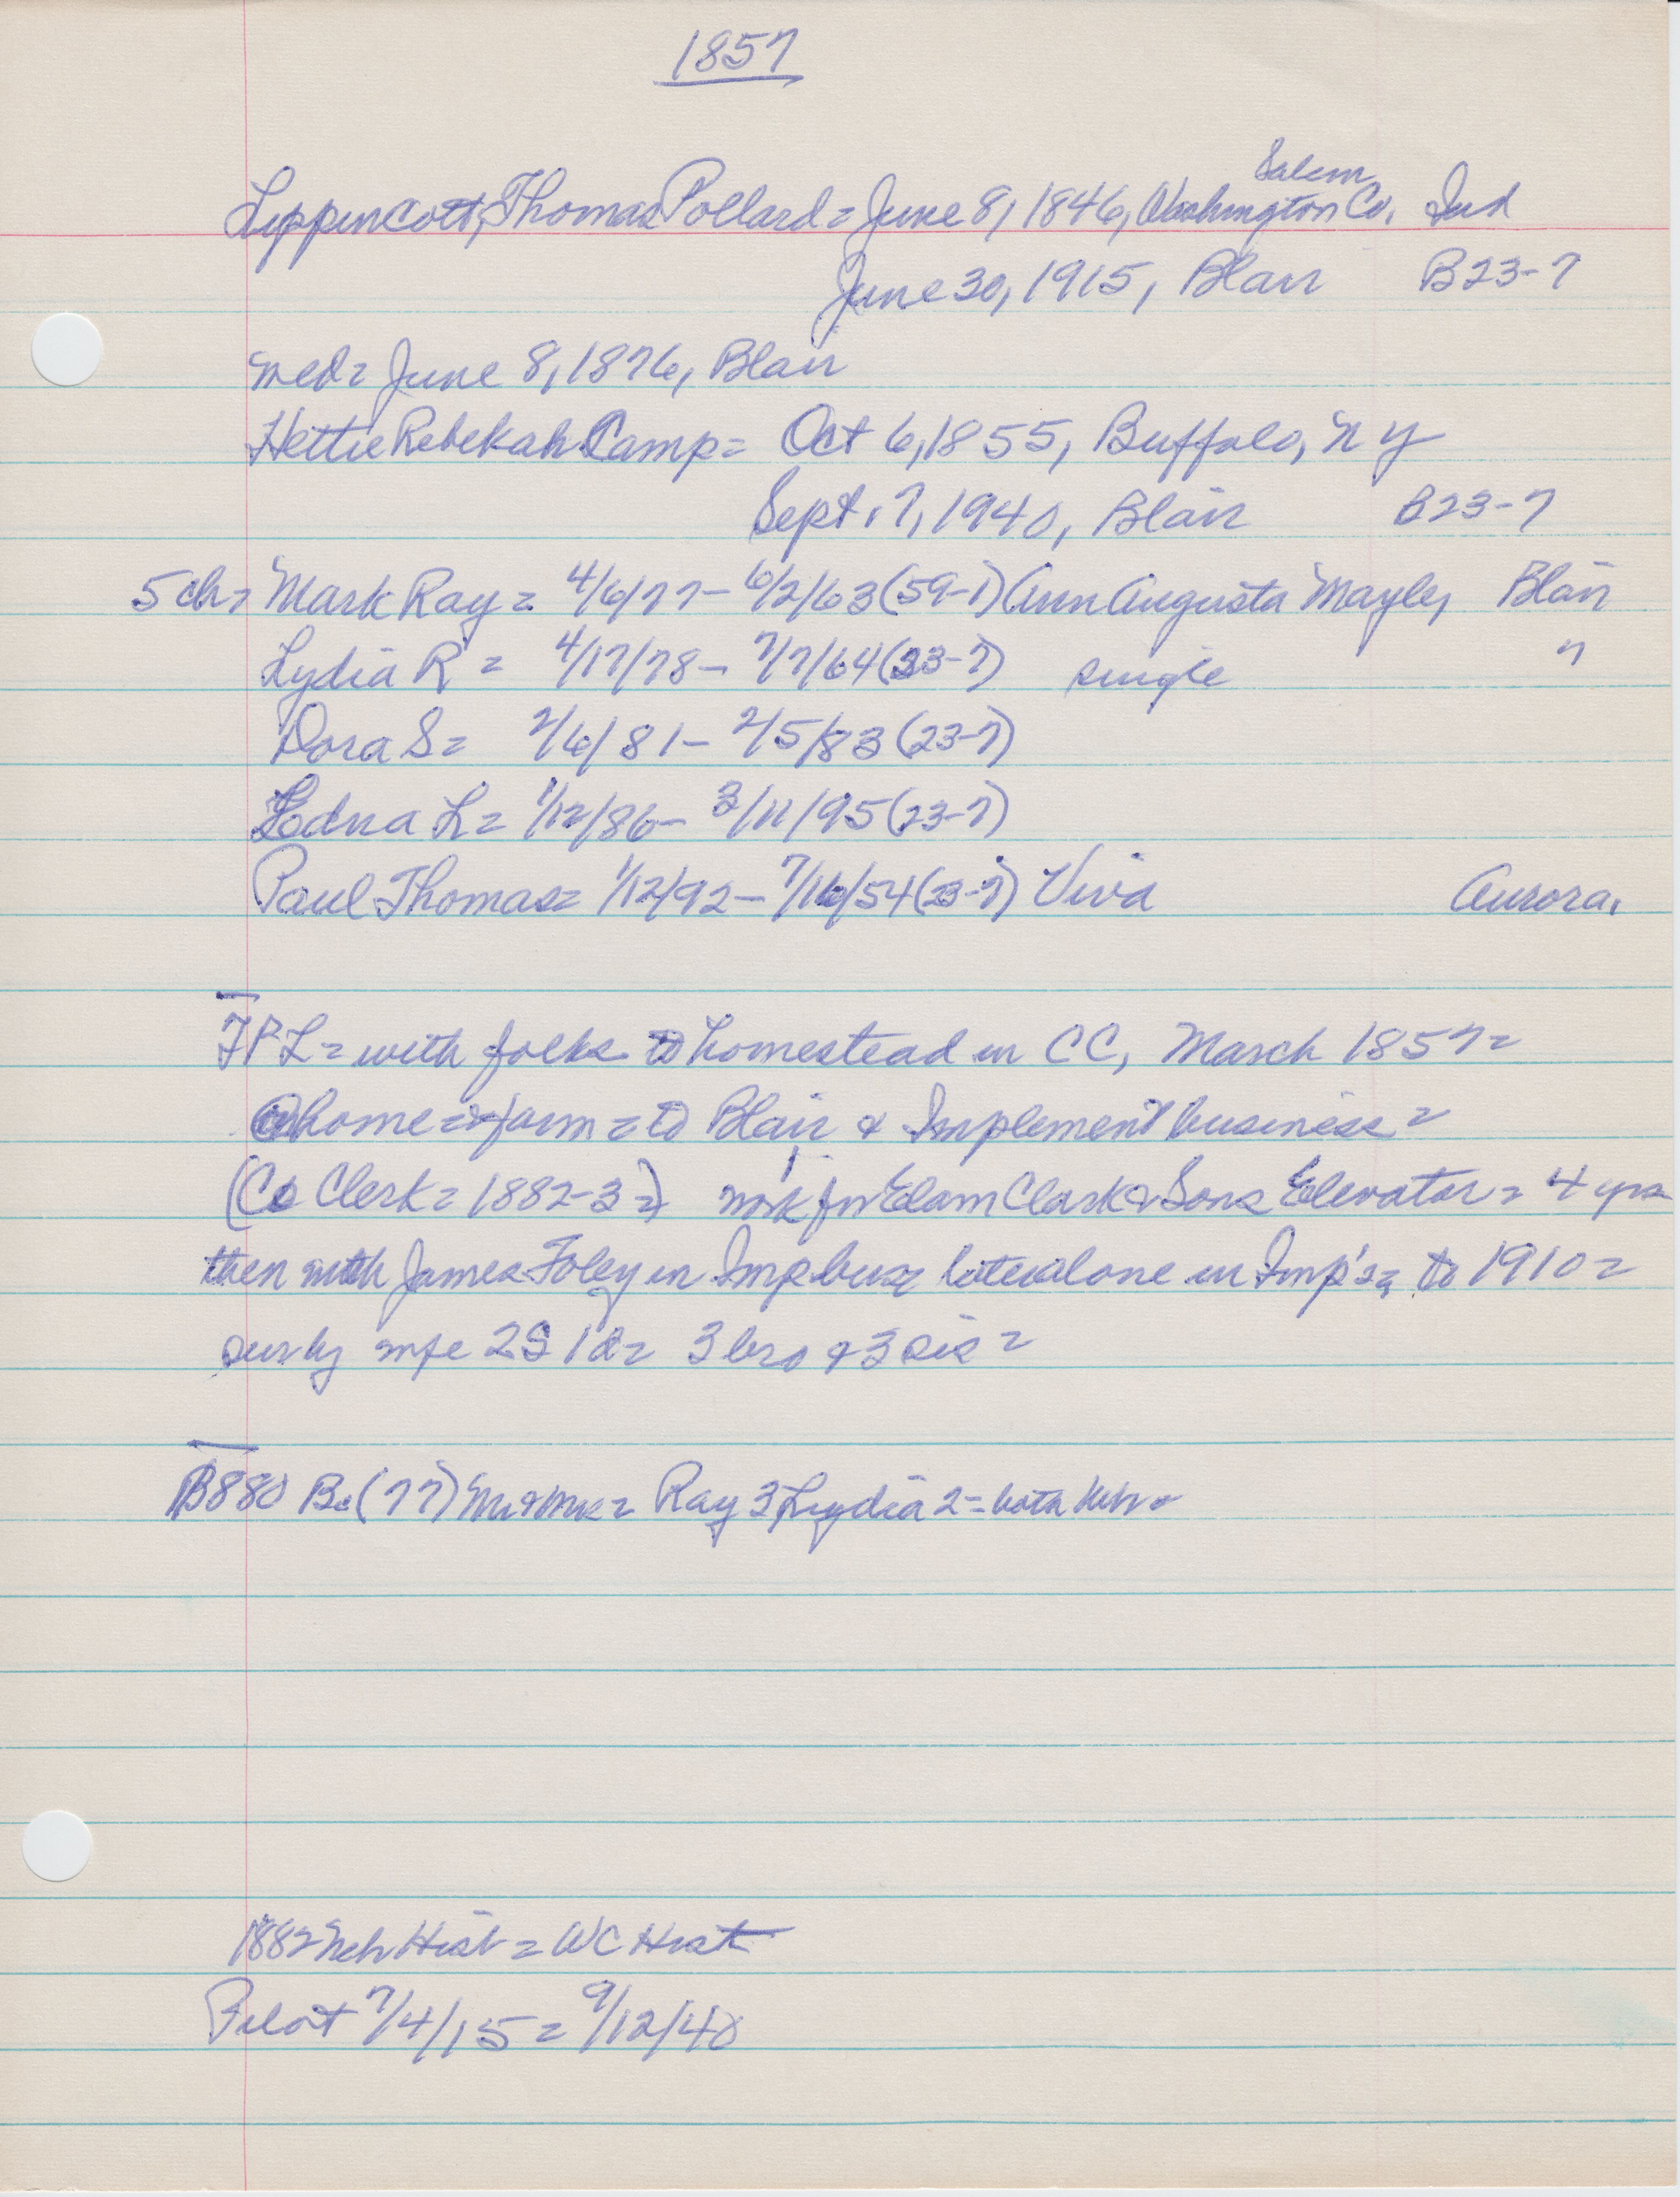 1857
Salem
Lippincott, Thomas Pollard = June 8, 1846, Washington Co, Ind
June 30, 1915, Blair B23-7
med = June 8, 1876, Blair
Hettie Rebekah Camp = Oct 6, 1855, Buffalo, NY
Sept. 7, 1940, Blair B23-7
5 ch = Mark Ray = 4/6/77 - 6/2/63 (59-1) Ann Augusta Mayle, Blair
Lydia R = 4/17/78 - 7/7/64 (23-7) single "
Dora S = 2/6/81 - 2/5/83 (23-7)
Edna L = 1/12/86 - 3/11/95 (23-7)
Paul Thomas = 1/12/92 - 7/16/54 (23-7) Viva Aurora.
TPL = with folks to homestead in CC, March 1857 =
@ home = farm = to Blair & Implement business =
(Co Clerk = 1882-3 =) work for Elam Clark & Sons Elevator = 4 yrs
then with James Foley in Imp bus = later alone in Imp's = to 1910 =
surv by wife 2S 1d = 3 bro & 3 sis =
1880 Bc (77) Mr & Mrs = Ray 3 Lydia 2 = both Neb =
1882 Neb Hist = WC Hist
Pilot 7/4/15 = 9/12/40